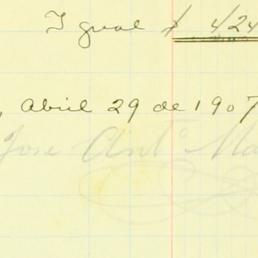 Igual $ 424
, Abril 29 de 1907
Jose Ant° Ma